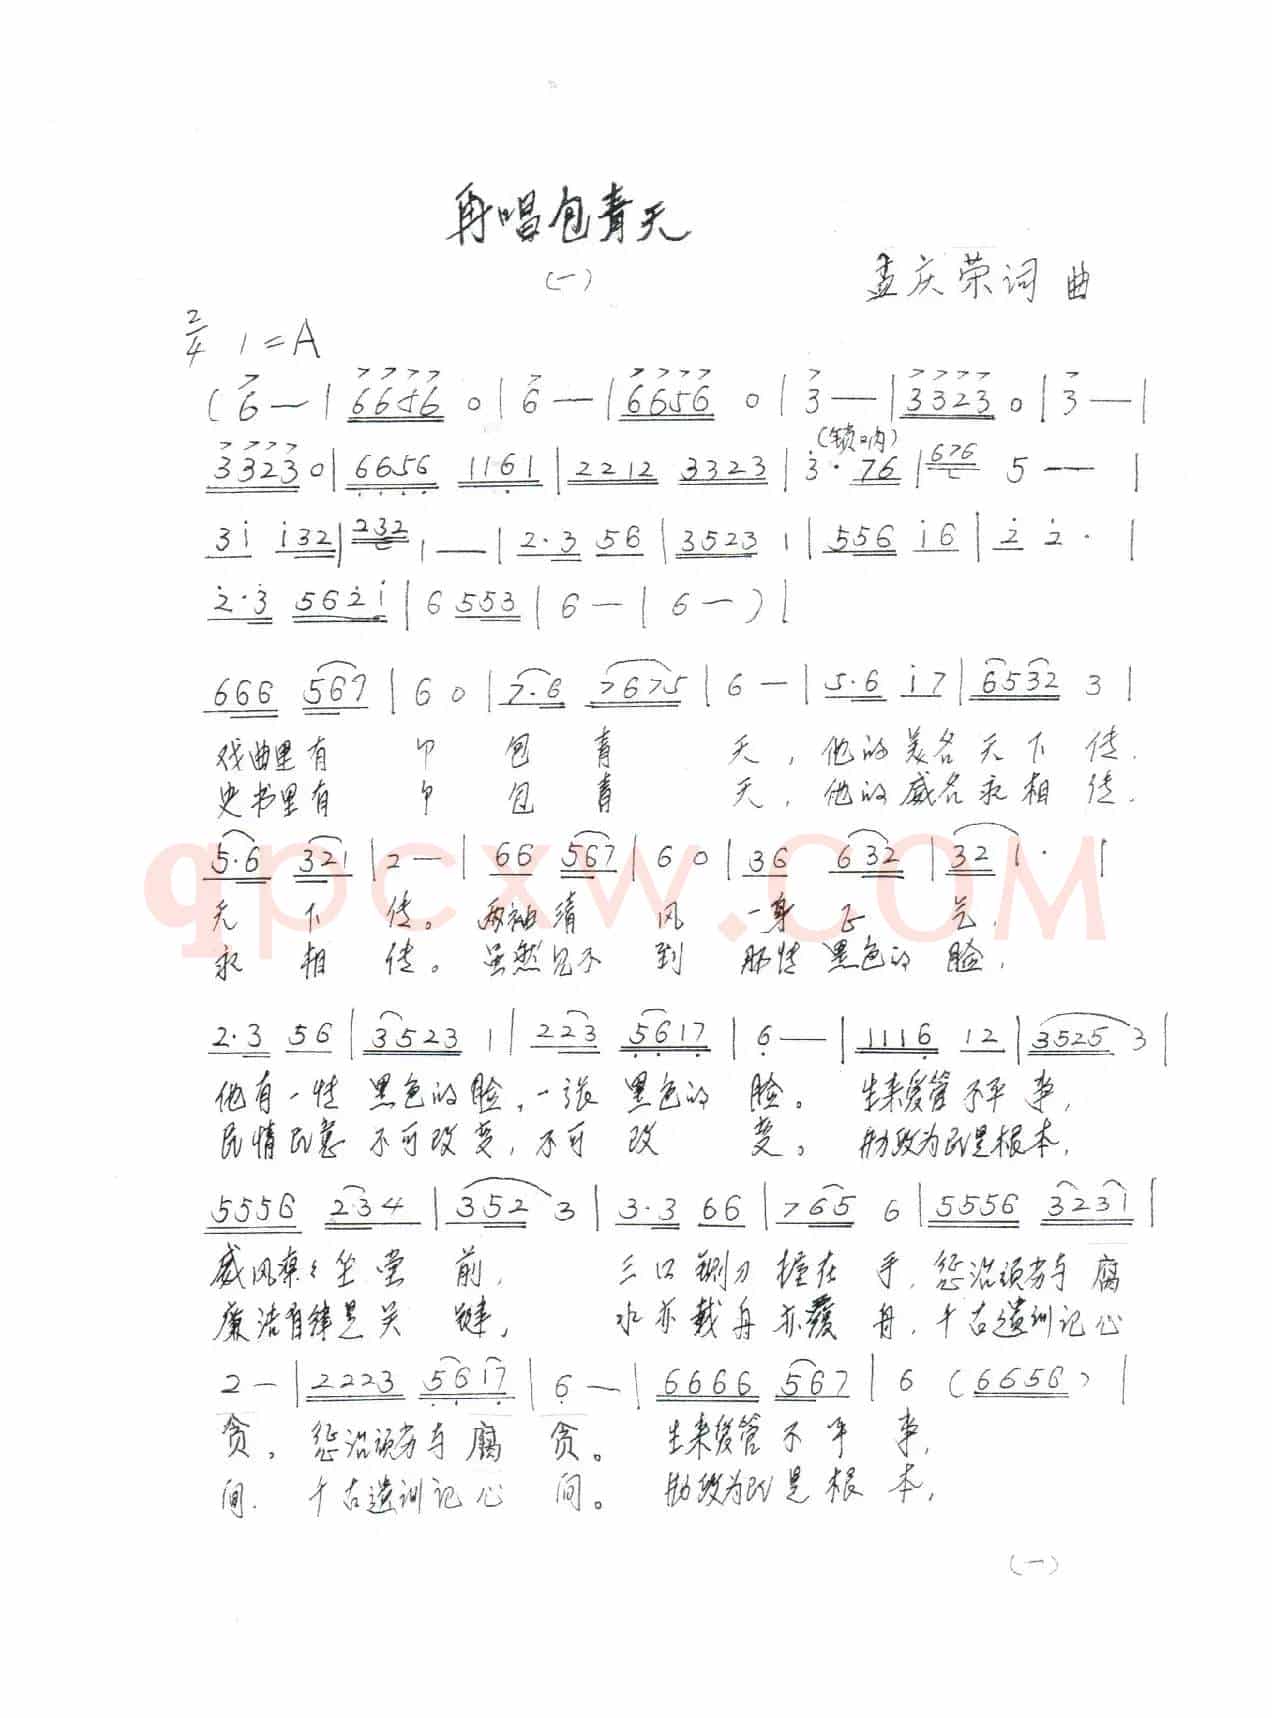 再唱包青天
(一)
孟庆荣词曲
2/4 1=A
(6 — | 6656 0 | 6 — | 6656 0 | 3 — | 3323 0 | 3 — |
(锁呐)
3323 0 | 6656 1161 | 2212 3323 | 3· 76 | 676 5 — |
3i i32 | 232 1 — | 2·3 56 | 3523 1 | 556 i6 | 2 2· |
2·3 562i | 6 553 | 6 — | 6 — ) |
666 567 | 6 0 | 7·6 7675 | 6 — | 5·6 i7 | 6532 3 |
戏曲里有 个 包 青 天, 他的美名天下传.
史书里有 个 包 青 天, 他的威名永相传.
5·6 321 | 2 — | 66 567 | 6 0 | 36 632 | 32 1· |
天 下 传。 两袖清 风 一身正气.
永 相 传。 虽然见不到 那 黑色的脸,
2·3 56 | 3523 1 | 223 5617 | 6 — | 1116 12 | 3525 3 |
他有一 黑色的脸, 一张黑色的脸。 生来爱管不平事,
民情民意不可改变, 不可改 变。 勤政为民是根本,
5556 2·34 | 352 3 | 3·3 66 | 765 6 | 5556 3231 |
威风凛々坐堂前, 三口铡刀握在手, 惩治 与腐
廉洁自律是关键, 水亦载舟亦覆舟, 千古遗训记心
2 — | 2223 5617 | 6 — | 6666 567 | 6 (6656) |
贪, 惩治 与腐贪。 生来爱管不平事,
间. 千古遗训记心间。 勤政为民是根本,
(一)
qpcxw.COM